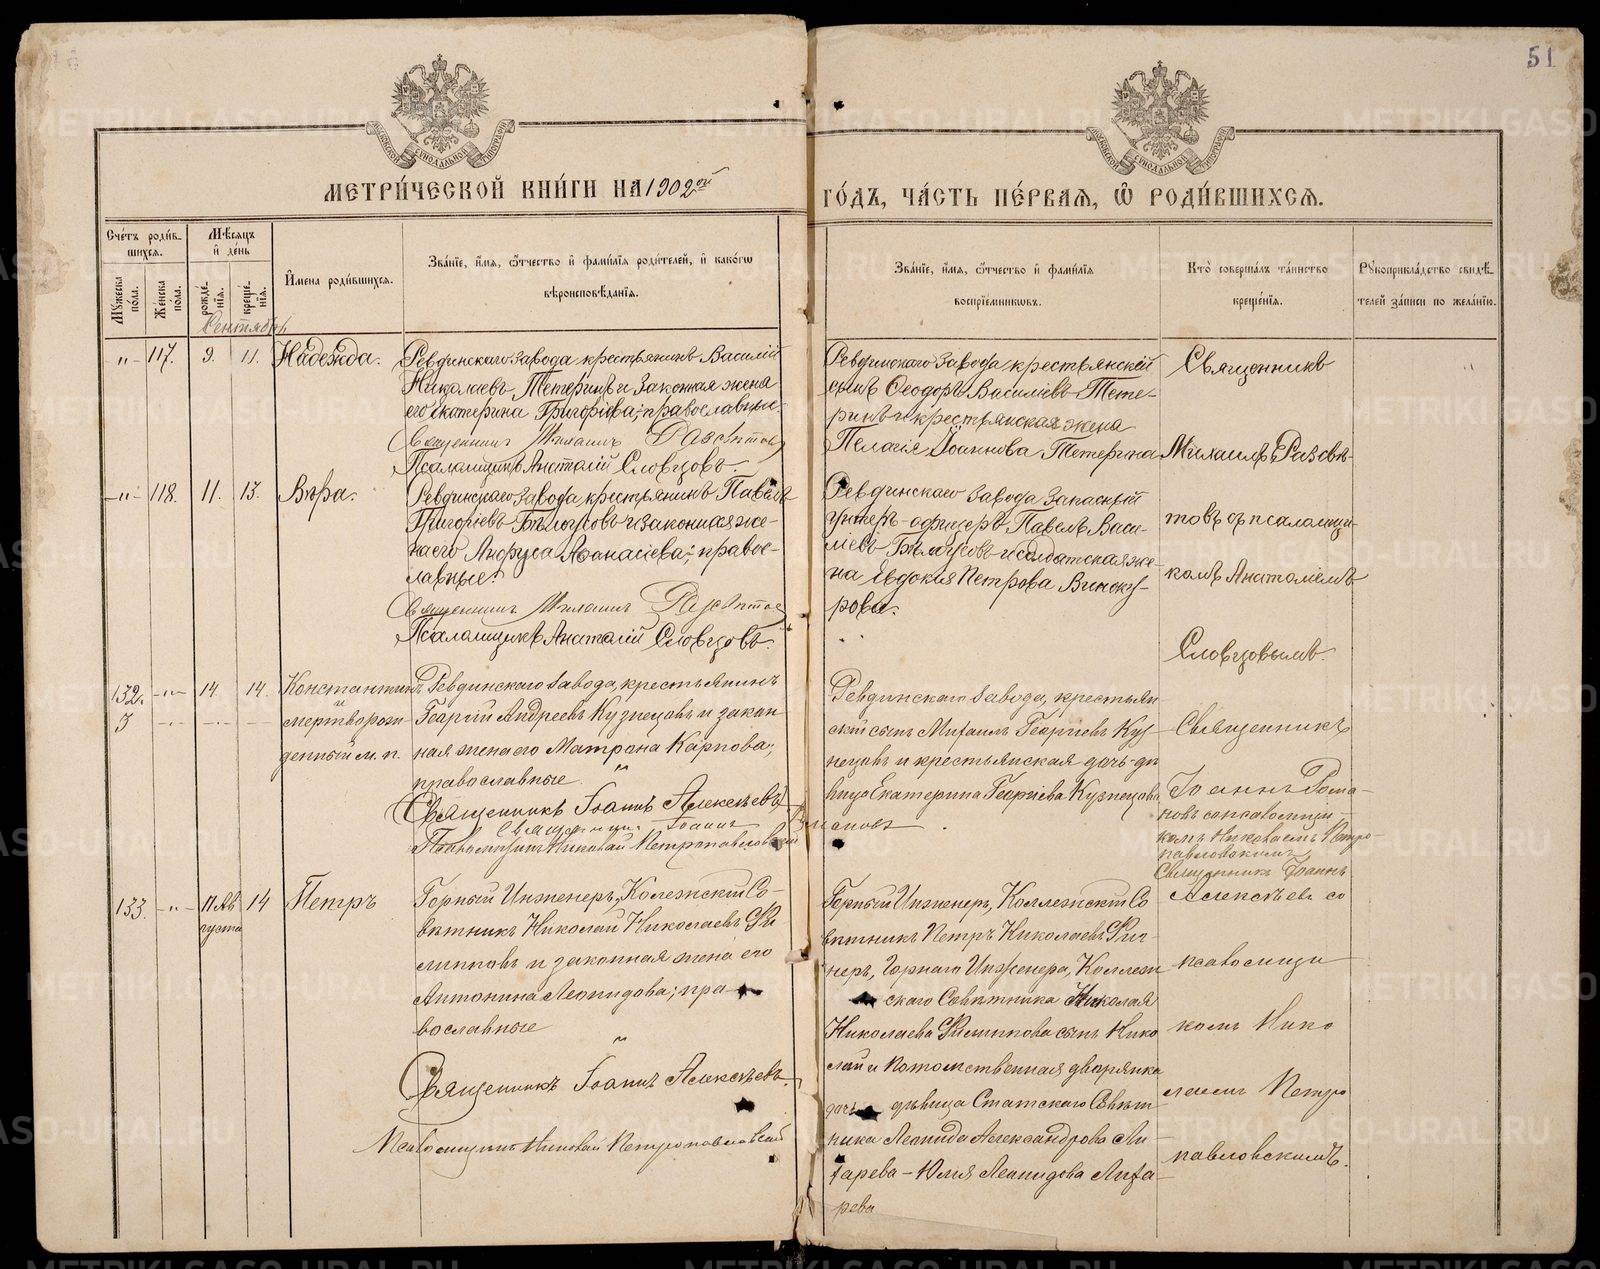 51
МОСКОВСКОЙ СѴНОДАЛЬНОЙ ТИПОГРАФІИ
МОСКОВСКОЙ СѴНОДАЛЬНОЙ ТИПОГРАФІИ
МЕТРИ́ЧЕСКОЙ КНИ́ГИ НА 1902ой
ГО́ДЪ, ЧА́СТЬ ПЕ́РВАѦ, Ѽ РОДИ́ВШИХСѦ.
Сче́тъ роди́в-
шихсѧ.
Мꙋжеска по́ла.
Же́нска по́ла.
Мѣ́сѧцъ
и҆ де́нь
рожде́нїѧ.
креще́нїѧ.
И҆мена роди́вшихсѧ.
Зва́нїе, и҆́мѧ, ѻ҆́тчество и҆ фами́лїѧ роди́телей, и҆ како́гѡ
вѣроисповѣ́данїѧ.
Зва́нїе, и҆́мѧ, ѻ҆́тчество и҆ фами́лїѧ
воспрїе́мникѡвъ.
Кто̀ соверша́лъ та́инство
креще́нїѧ.
Рꙋкоприкла́дство свидѣ́-
телей за́писи по жела́нїю.
Сентябрь
-"- 117. 9. 11. Надежда.
Ревдинскаго завода крестьянинъ Василій
Николаевъ Тетеринъ и законная жена
его Екатерина Григоріева; православные.
Священникъ Михаилъ Разсвѣтовъ
Псаломщикъ Анатолій Словцовъ.
Ревдинскаго завода крестьянскій
сынъ Ѳеодоръ Василіевъ Тете-
ринъ и крестьянская жена
Пелагія Іоаннова Тетерина
-"- 118. 11. 13. Вѣра.
Ревдинскаго завода крестьянинъ Павелъ
Григоріевъ Бѣлоусовъ и законная же-
на его Анфуса Аѳанасіева; правос-
лавные.
Священникъ Михаилъ Разсвѣтовъ
Псаломщикъ Анатолій Словцовъ.
Ревдинскаго завода запасный
унтеръ-офицеръ Павелъ Васи-
ліевъ Бѣлоусовъ и солдатская же-
на Евдокія Петрова Виноку-
рова.
Священникъ
Михаилъ Разсвѣ-
товъ съ псаломщи-
комъ Анатоліемъ
Словцовымъ.
132. -"- 14. 14. Константинъ
и
3 -"- -"- мертворож
денный м. п.
Ревдинскаго завода, крестьянинъ
Георгій Андреевъ Кузнецовъ и закон
ная жена его Матрона Карпова;
православные
Священникъ Іоаннъ Алексѣевъ
Священникъ Іоаннъ Романовъ
Псаломщикъ Николай Петропавловскій
Ревдинскаго завода, крестьян
скій сынъ Михаилъ Георгіевъ Куз-
нецовъ и крестьянская дочь-дѣ
вица Екатерина Георгіева Кузнецова
Священникъ
Іоаннъ Рома-
новъ съ псаломщи-
комъ Николаемъ Петро-
павловскимъ
133. -"- 11 Ав
густа 14 Петръ
Горный Инженеръ, Колежскій Со-
вѣтникъ Николай Николаевъ Фи
липповъ и законная жена его
Антонина Леонидова; пра-
вославные
Священникъ Іоаннъ Алексѣевъ.
Псаломщикъ Николай Петропавловскій
Горный Инженеръ, Коллежскій Со
вѣтникъ Петръ Николаевъ Фиг-
неръ, Горнаго Инженера, Коллеж
скаго Совѣтника Николая
Николаева Филиппова сынъ Нико
лай и потомственная дворянка
дочь дѣвица Статскаго Совѣт
ника Леонида Александрова Ли-
харева - Юлія Леонидова Лиха-
рева
Священникъ Іоаннъ
Алексѣевъ со
псаломщи
комъ Нико
лаемъ Петро
павловскимъ.
METRIKI.GASO-URAL.RU